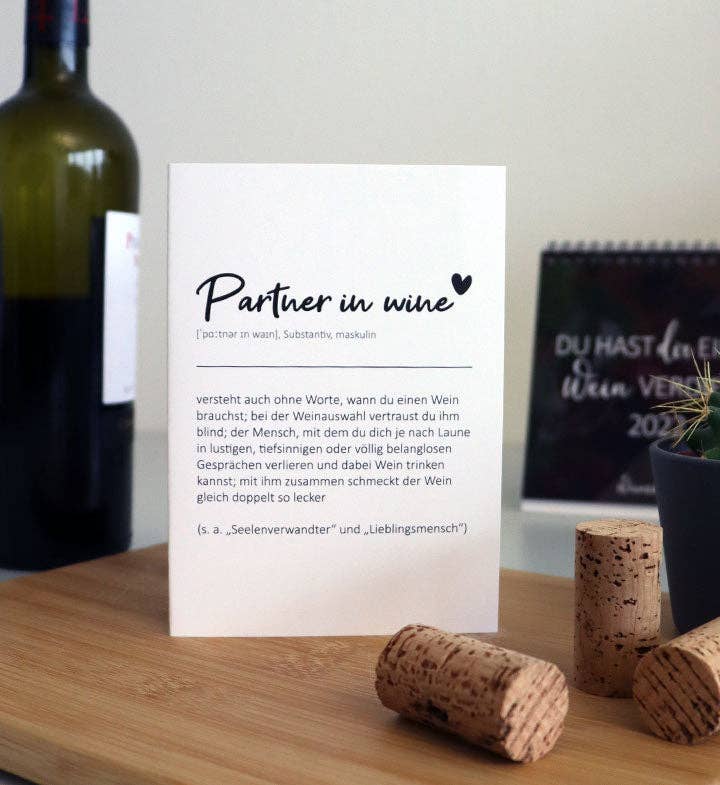 Partner in wine
[ˈpɑːtnər ɪn waɪn], Substantiv, maskulin
versteht auch ohne Worte, wann du einen Wein
brauchst; bei der Weinauswahl vertraust du ihm
blind; der Mensch, mit dem du dich je nach Laune
in lustigen, tiefsinnigen oder völlig belanglosen
Gesprächen verlieren und dabei Wein trinken
kannst; mit ihm zusammen schmeckt der Wein
gleich doppelt so lecker
(s. a. „Seelenverwandter“ und „Lieblingsmensch“)
DU HAST den
Wein